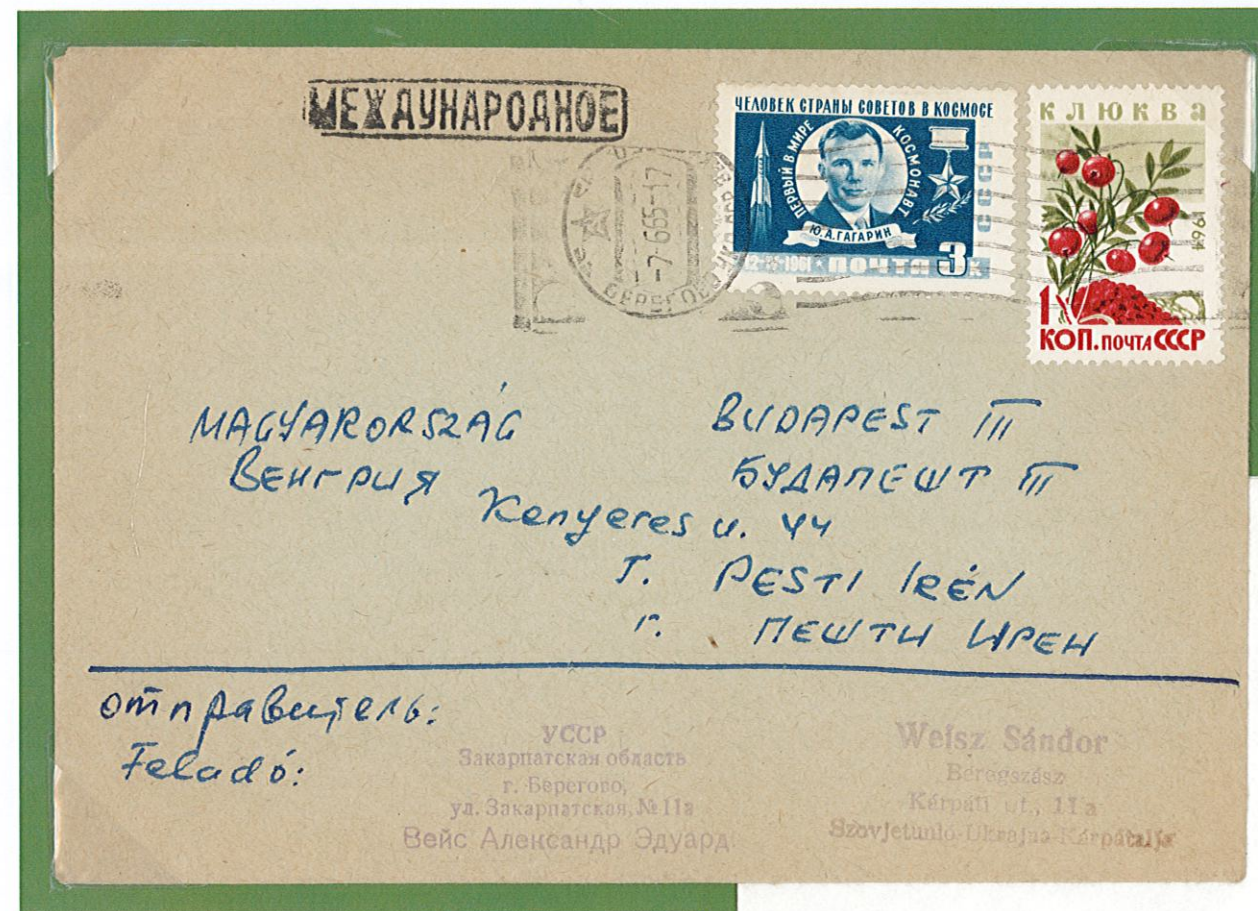 МЕЖДУНАРОДНОЕ
ЧЕЛОВЕК СТРАНЫ СОВЕТОВ В КОСМОСЕ
ПЕРВЫЙ В МИРЕ
КОСМОНАВТ
Ю.А.ГАГАРИН
СССР
12-IV-1961 ПОЧТА 3к
КЛЮКВА
1964
1
КОП. ПОЧТА СССР
-7665-17
БЕРЕГОВО
MAGYARORSZÁG
ВЕНГРИЯ
BUDAPEST III
БУДАПЕШТ III
Kenyeres u. 44
T. PESTI IRÉN
г. ПЕШТИ ИРЕН
отправитель:
Feladó:
УССР
Закарпатская область
г. Берегово,
ул. Закарпатская, № 11а
Вейс Александр Эдуард.
Weisz Sándor
Beregszász
Kárpáti ut., 11a
Szovjetunió-Ukrajna-Kárpátalja